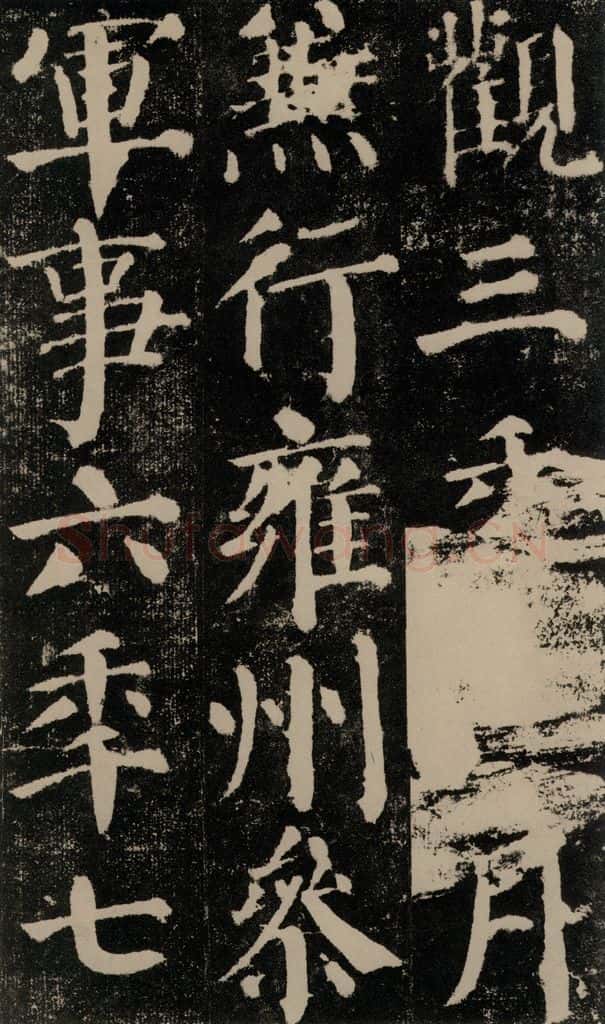 觀三年月
兼行雍州參
軍事六年七
Shufawang.CN